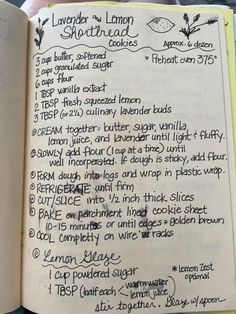 Lavender and Lemon
Shortbread
Cookies
Approx. 6 dozen
3 cups butter, softened
2 cups granulated sugar
6 cups flour
1 TBSP vanilla extract
2 TBSP fresh squeezed lemon
3 TBSP (or 2½) culinary lavender buds
*Preheat oven 375°
① CREAM together: butter, sugar, vanilla
lemon juice, and lavender until light & fluffy.
② SLOWLY add flour (1 cup at a time) until
well incorporated. If dough is sticky, add flour.
③ FORM dough into logs and wrap in plastic wrap.
④ REFRIGERATE until firm
⑤ CUT/SLICE into ½ inch thick slices
⑥ BAKE on parchment lined cookie sheet
10-15 minutes or until edges = golden brown
⑦ COOL completly on wire racks
Lemon Glaze
1 cup powdered sugar
1 TBSP (half each warm water
lemon juice)
*Lemon Zest
optional
stir together. Glaze w/ spoon